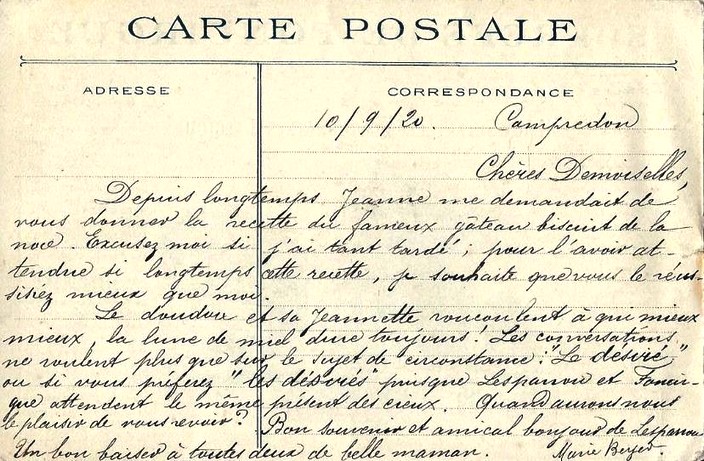 CARTE POSTALE
ADRESSE
CORRESPONDANCE
10/9/20. Campredon
Chères Demoiselles,
Depuis longtemps Jeanne me demandait de
vous donner la recette du fameux gâteau biscuit de la
noce. Excusez moi si j'ai tant tardé; pour l'avoir at-
tendue si longtemps cette recette, je souhaite que vous le réus-
sisiez mieux que moi.
Le doudou et sa Jeannette roucoulent à qui mieux
mieux, la lune de miel dure toujours! Les conversations
ne roulent plus que sur le sujet de circonstance: "Le désiré"
ou si vous préférez "les désirés" puisque Lesparrou et
que attendent le même présent des cieux. Quand aurons nous
le plaisir de vous revoir? Bon souvenir et amical bonjour de Lesparrou
Un bon baiser à toutes deux de belle maman. Marie